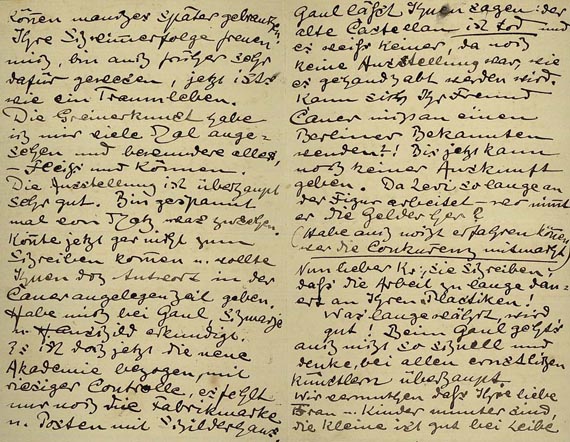 Können manches später gebrauchen
Ihre Schwimmerfolge freuen
mich, bin auch früher sehr
dafür gewesen, jetzt ist's
wie ein Traumleben.
Die Greinerkunst habe
ich mir viele Mal ange-
sehen und bewundere alles,
– Fleiss und Können.
Die Ausstellung ist überhaupt
sehr gut. Bin gespannt
mal von Metz was zu sehen.
Konnte jetzt gar nicht zum
Schreiben kommen u. wollte
Ihnen doch Antwort in der
Cauerangelegenzeit geben.
Habe mich bei Gaul
u. erkundigt.
Es ist doch jetzt die neue
Akademie bezogen, mit
riesiger Controlle, es fehlt
nur noch die Fabrikmarke
u. Posten mit Schilderhaus
Gaul lässt Ihnen sagen: der
alte Castellan ist tod und
es weiss keiner, da noch
keine Ausstellung war, wie
es gehandhabt werden wird.
Kann sich Ihr Freund
Cauer nicht an einen
Berliner Bekannten
wenden?! Bis jetzt kann
noch keiner Auskunft
geben. Da Levi so lange an
der Figur arbeitet – wo nimmt
er die Gelder her?
(Habe auch nicht erfahren können
wer die Conkurenz mitmacht)
Nun lieber Kr., sie schreiben,
dass die Arbeit zu lange dau-
ert an Ihren Plastiken!
Was lange währt, wird
gut! Beim Gaul geht's
auch nicht so schnell und
denke, bei allen ernstlichen
Künstlern überhaupt.
Wir vermuthen dass Ihre liebe
Frau u. Kinder munter sind,
die Kleine ist gut bei Leibe